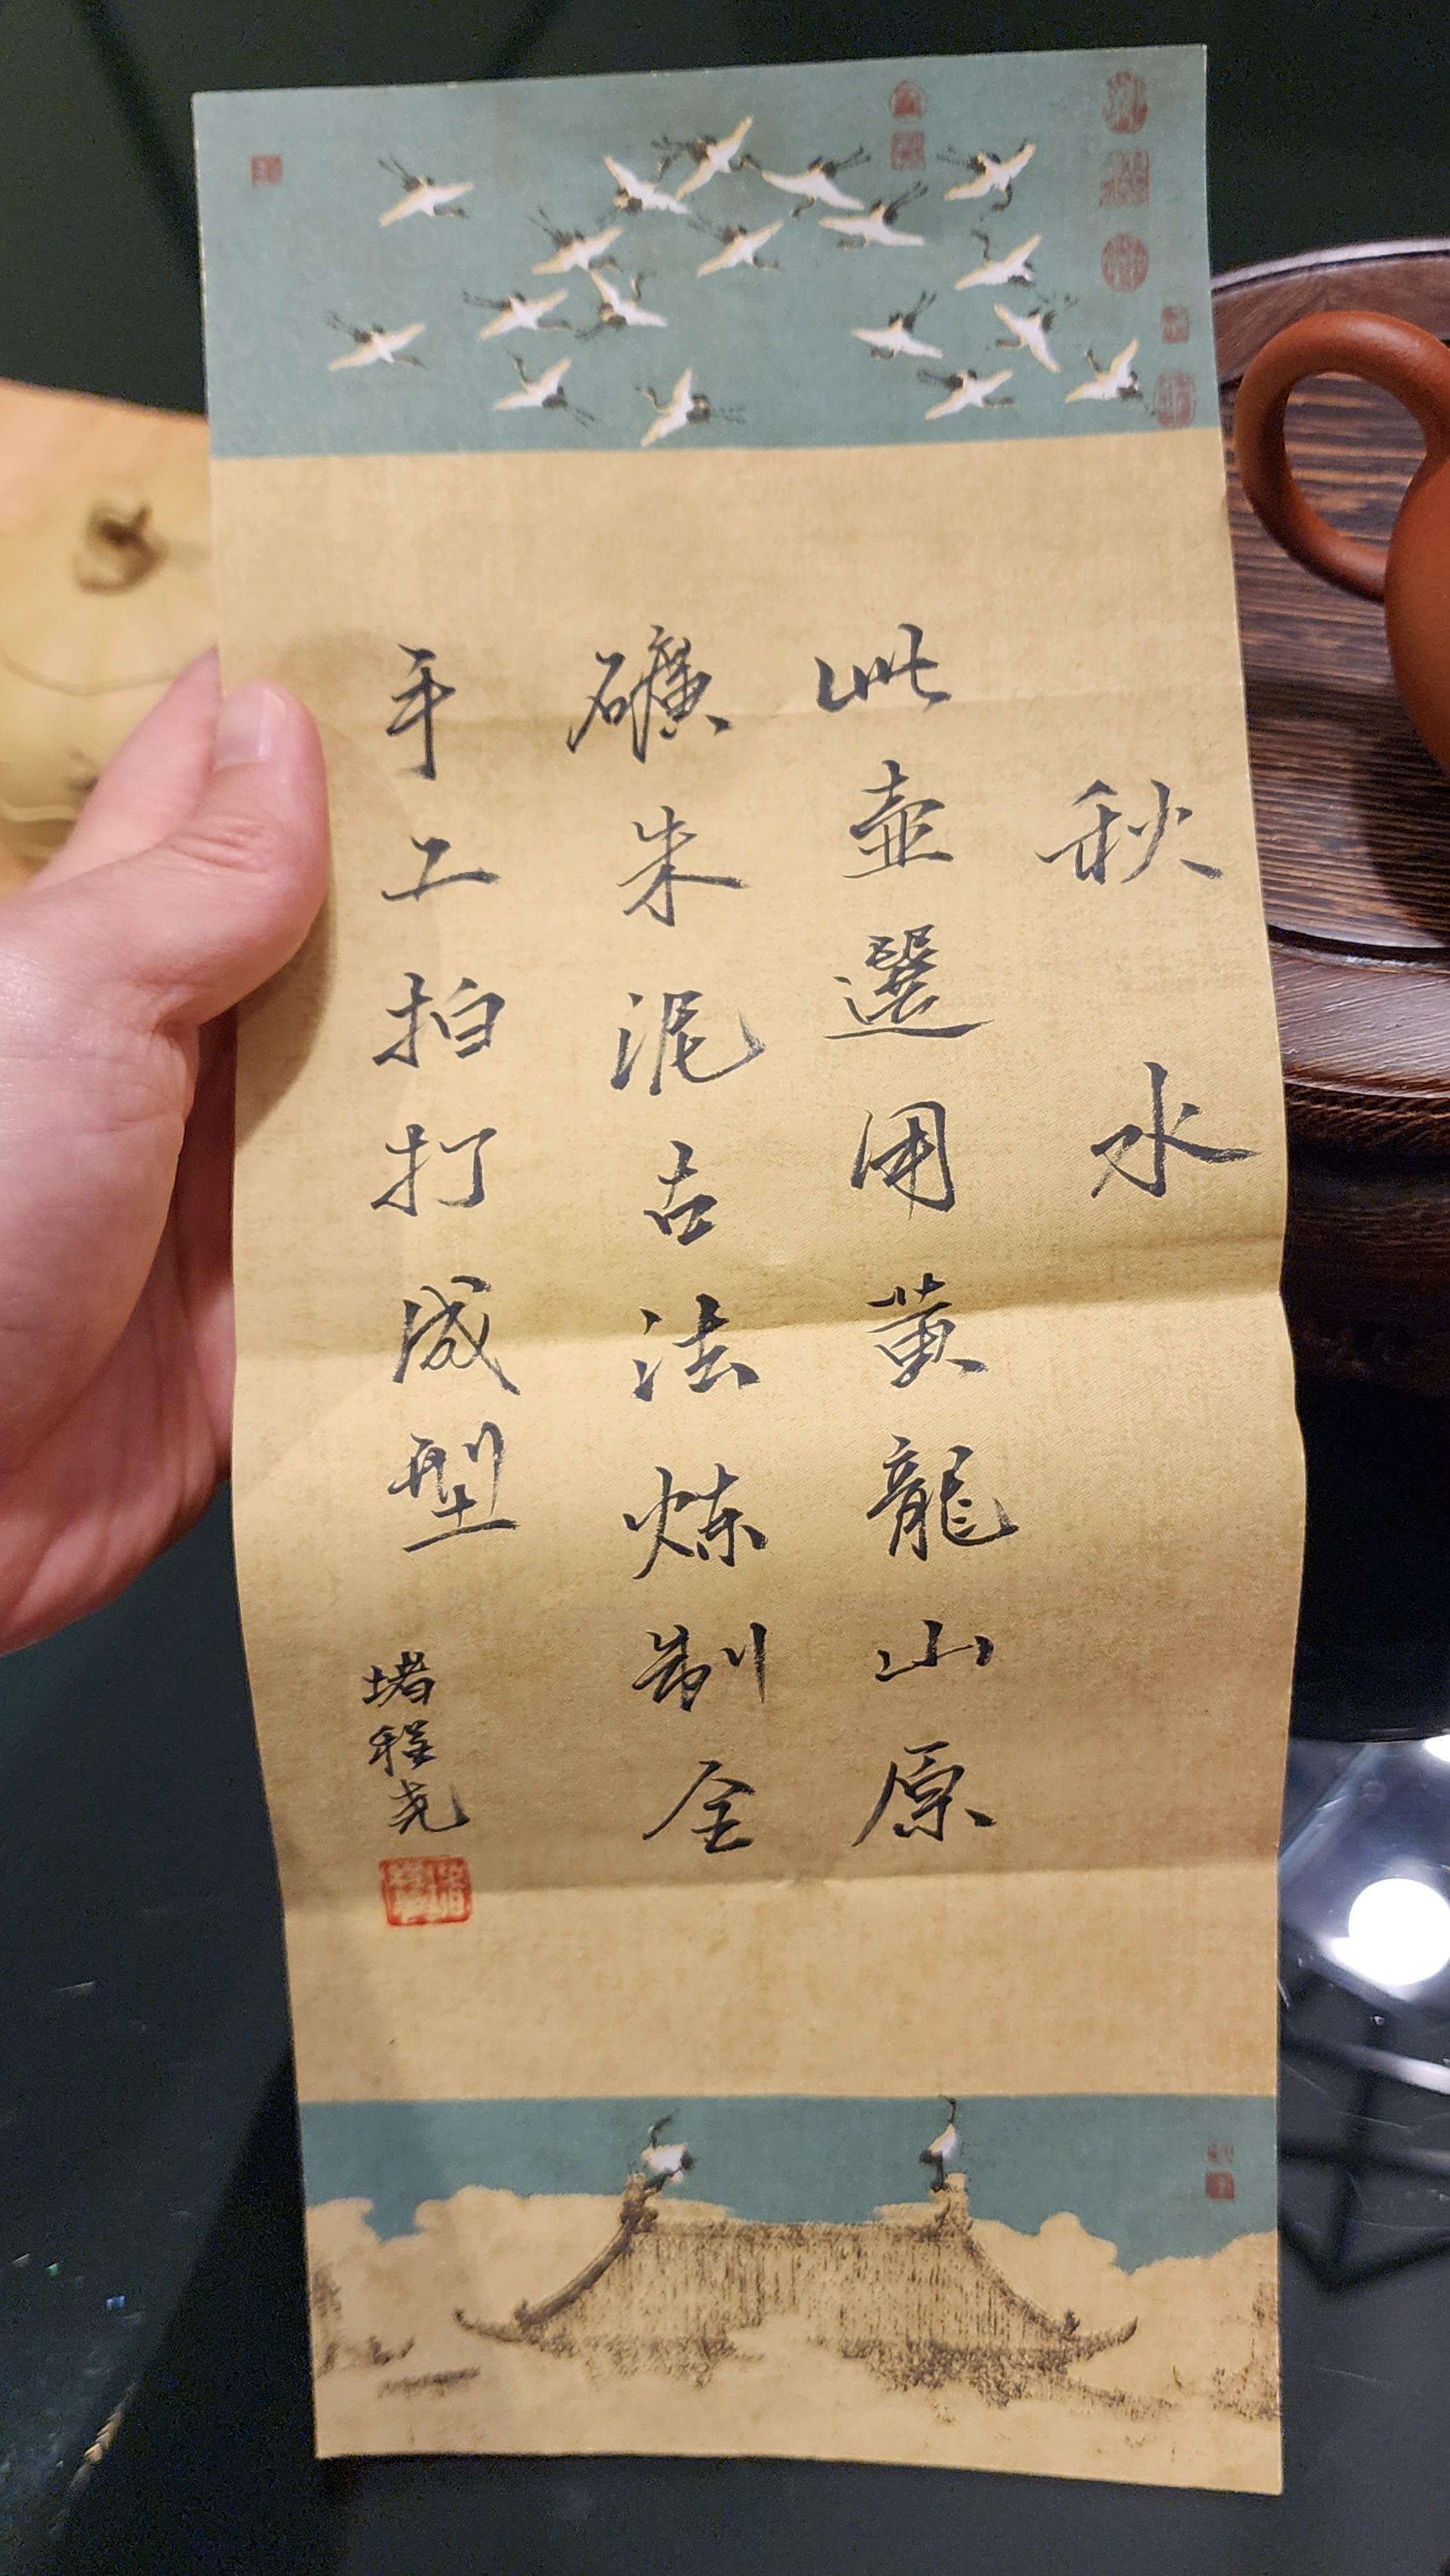 秋水
此壺選用黃龍山原
礦朱泥古法炼制全
手工拍打成型
堵程尧